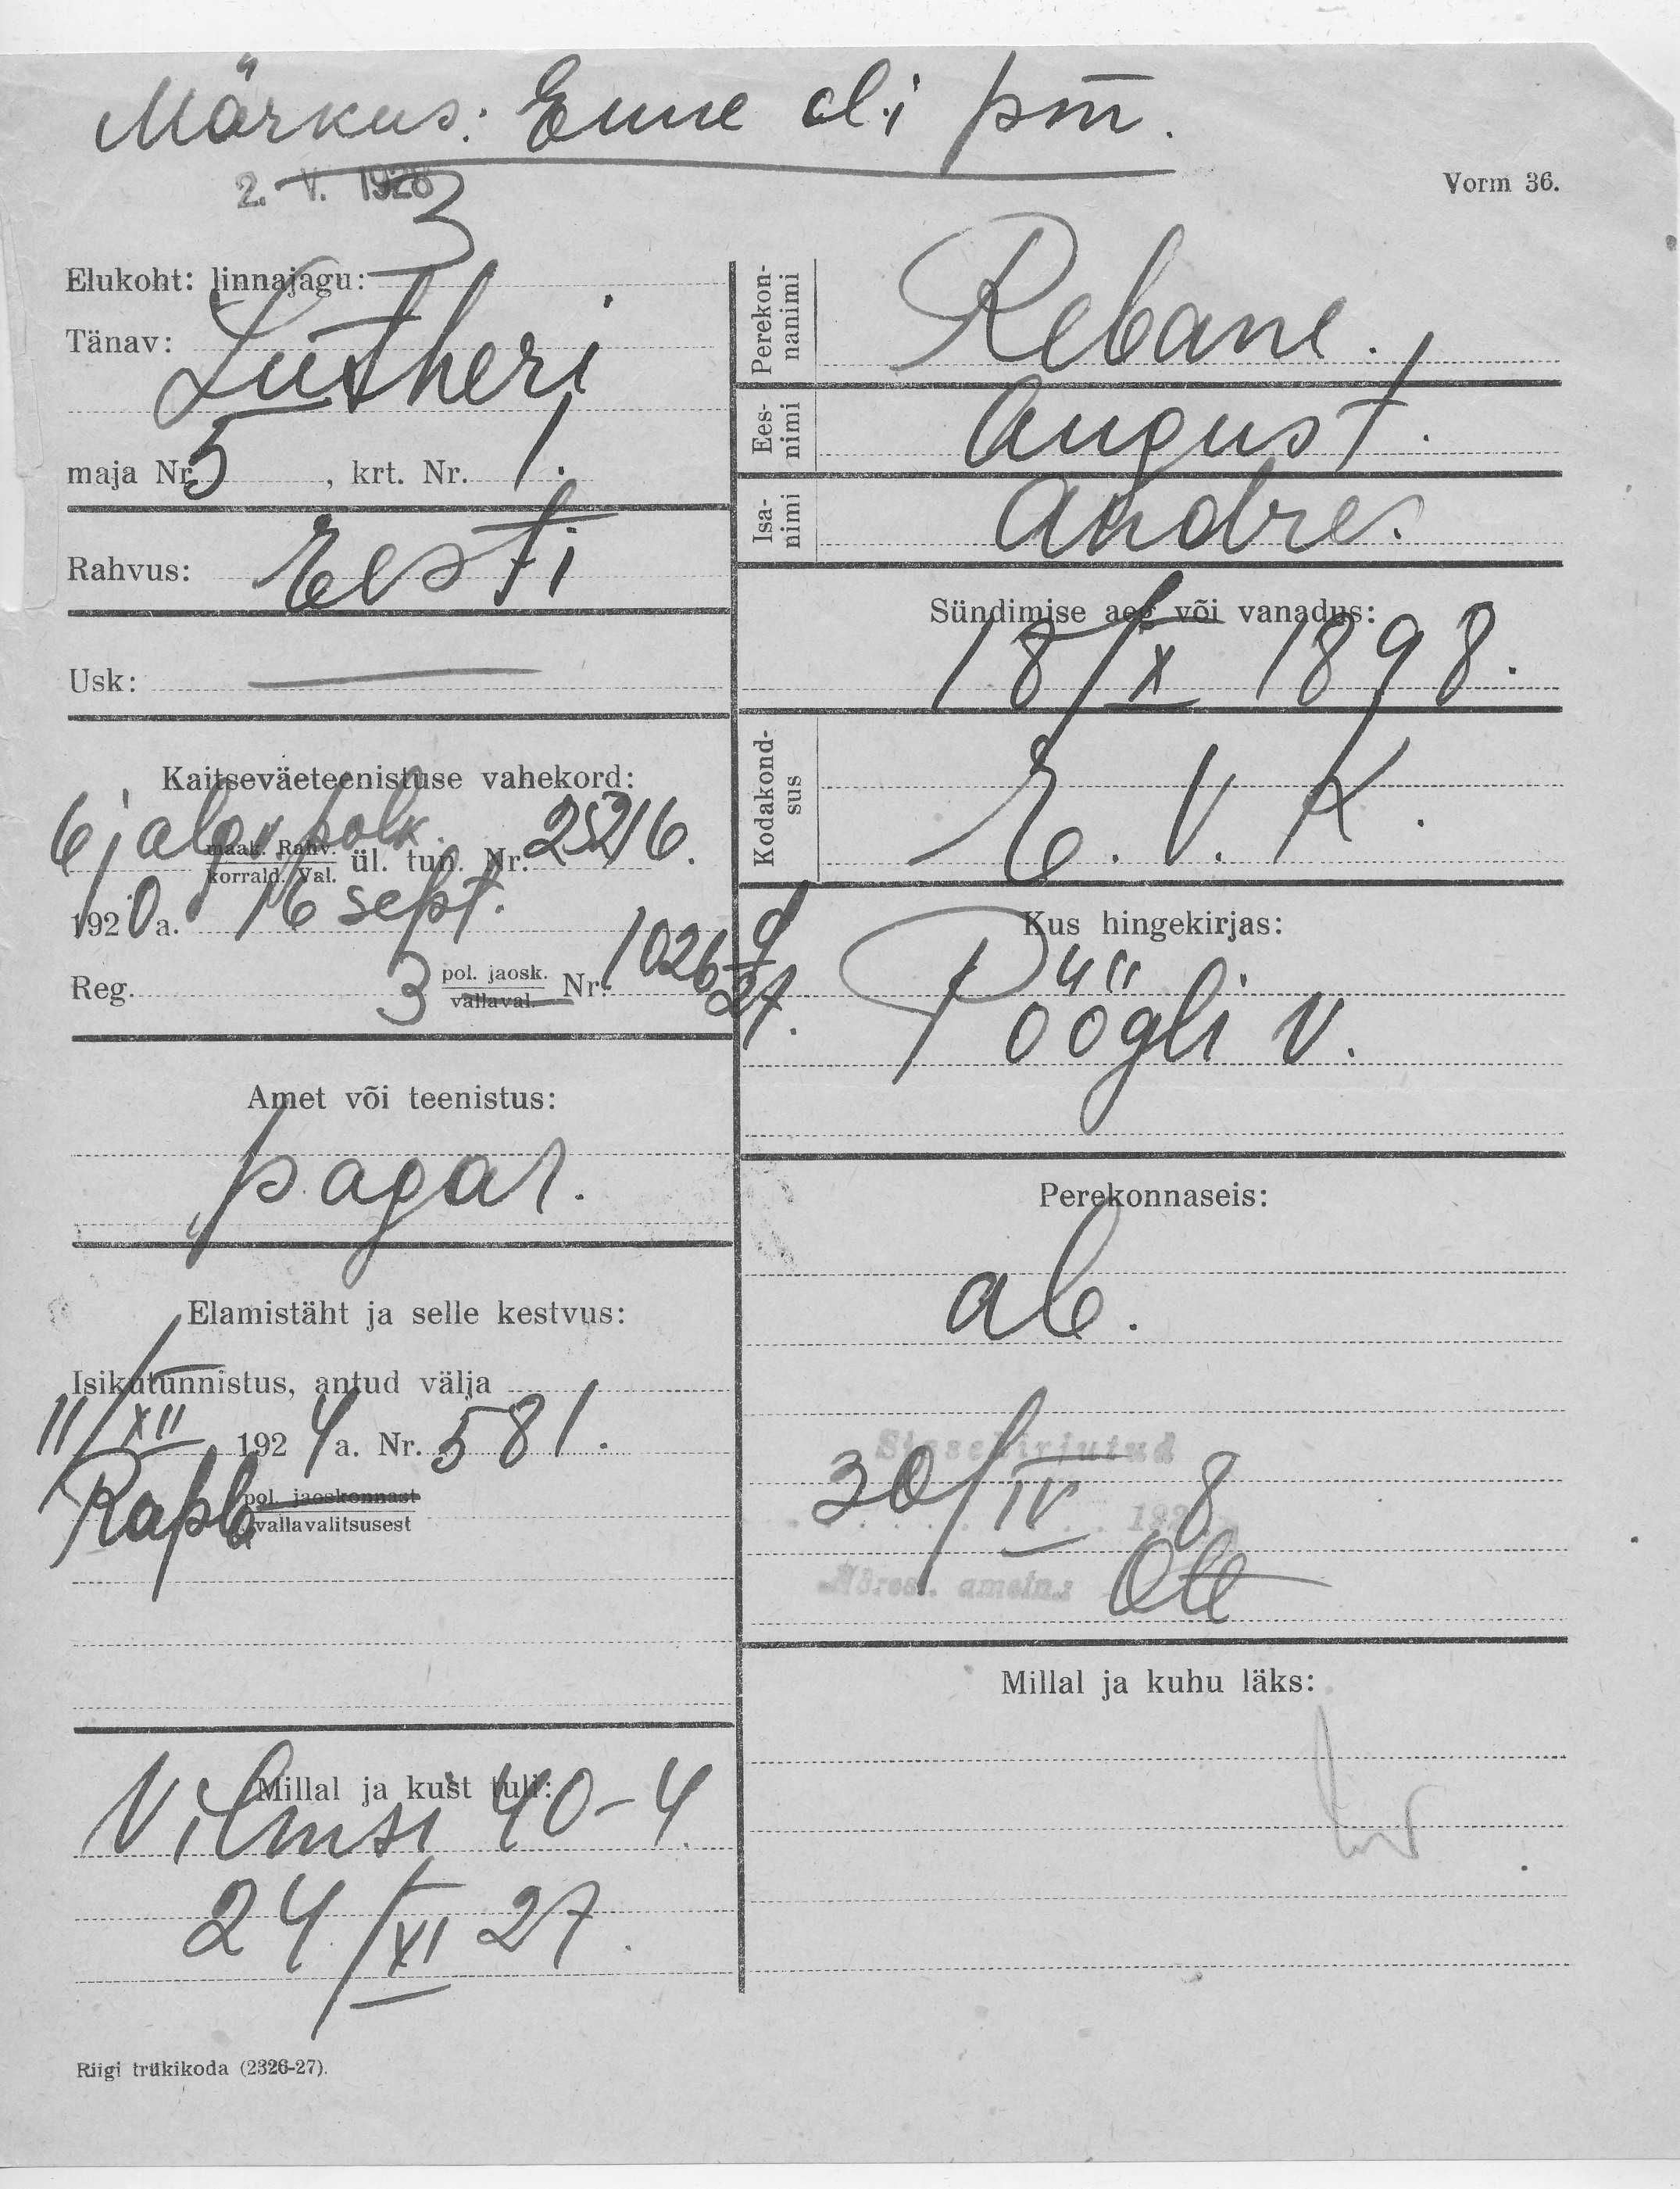 Märkus: Enne oli pm.
2. V. 1928
Vorm 36.
Elukoht: linnajagu: 3
Tänav: Lutheri
maja Nr. 5, krt. Nr. 1.
Rahvus: Eesti
Usk: —
Kaitseväeteenistuse vahekord:
6 jalav. polk.
maak. Rahv.
korrald. Val. ül. tun. Nr. 25216.
1920 a. 16 sept.
Reg. 3 pol. jaosk. Nr. 1026 d/27.
vallaval.
Amet või teenistus:
pagar.
Elamistäht ja selle kestvus:
Isikutunnistus, antud välja
11/XII 1924 a. Nr. 581.
Rapla pol. jaoskonnast
vallavalitsusest
Millal ja kust tuli:
Vilmsi 40-4.
24/XI 27.
Riigi trükikoda (2326-27).
Perekonnanimi Rebane.
Eesnimi August.
Isanimi Andre.
Sündimise aeg või vanadus:
18/X 1898.
Kodakondsus E. V. K.
Kus hingekirjas:
Pöögli v.
Perekonnaseis:
ab.
Sissekirjutud
30/IV 1928
Adress. ametn.:
Millal ja kuhu läks: